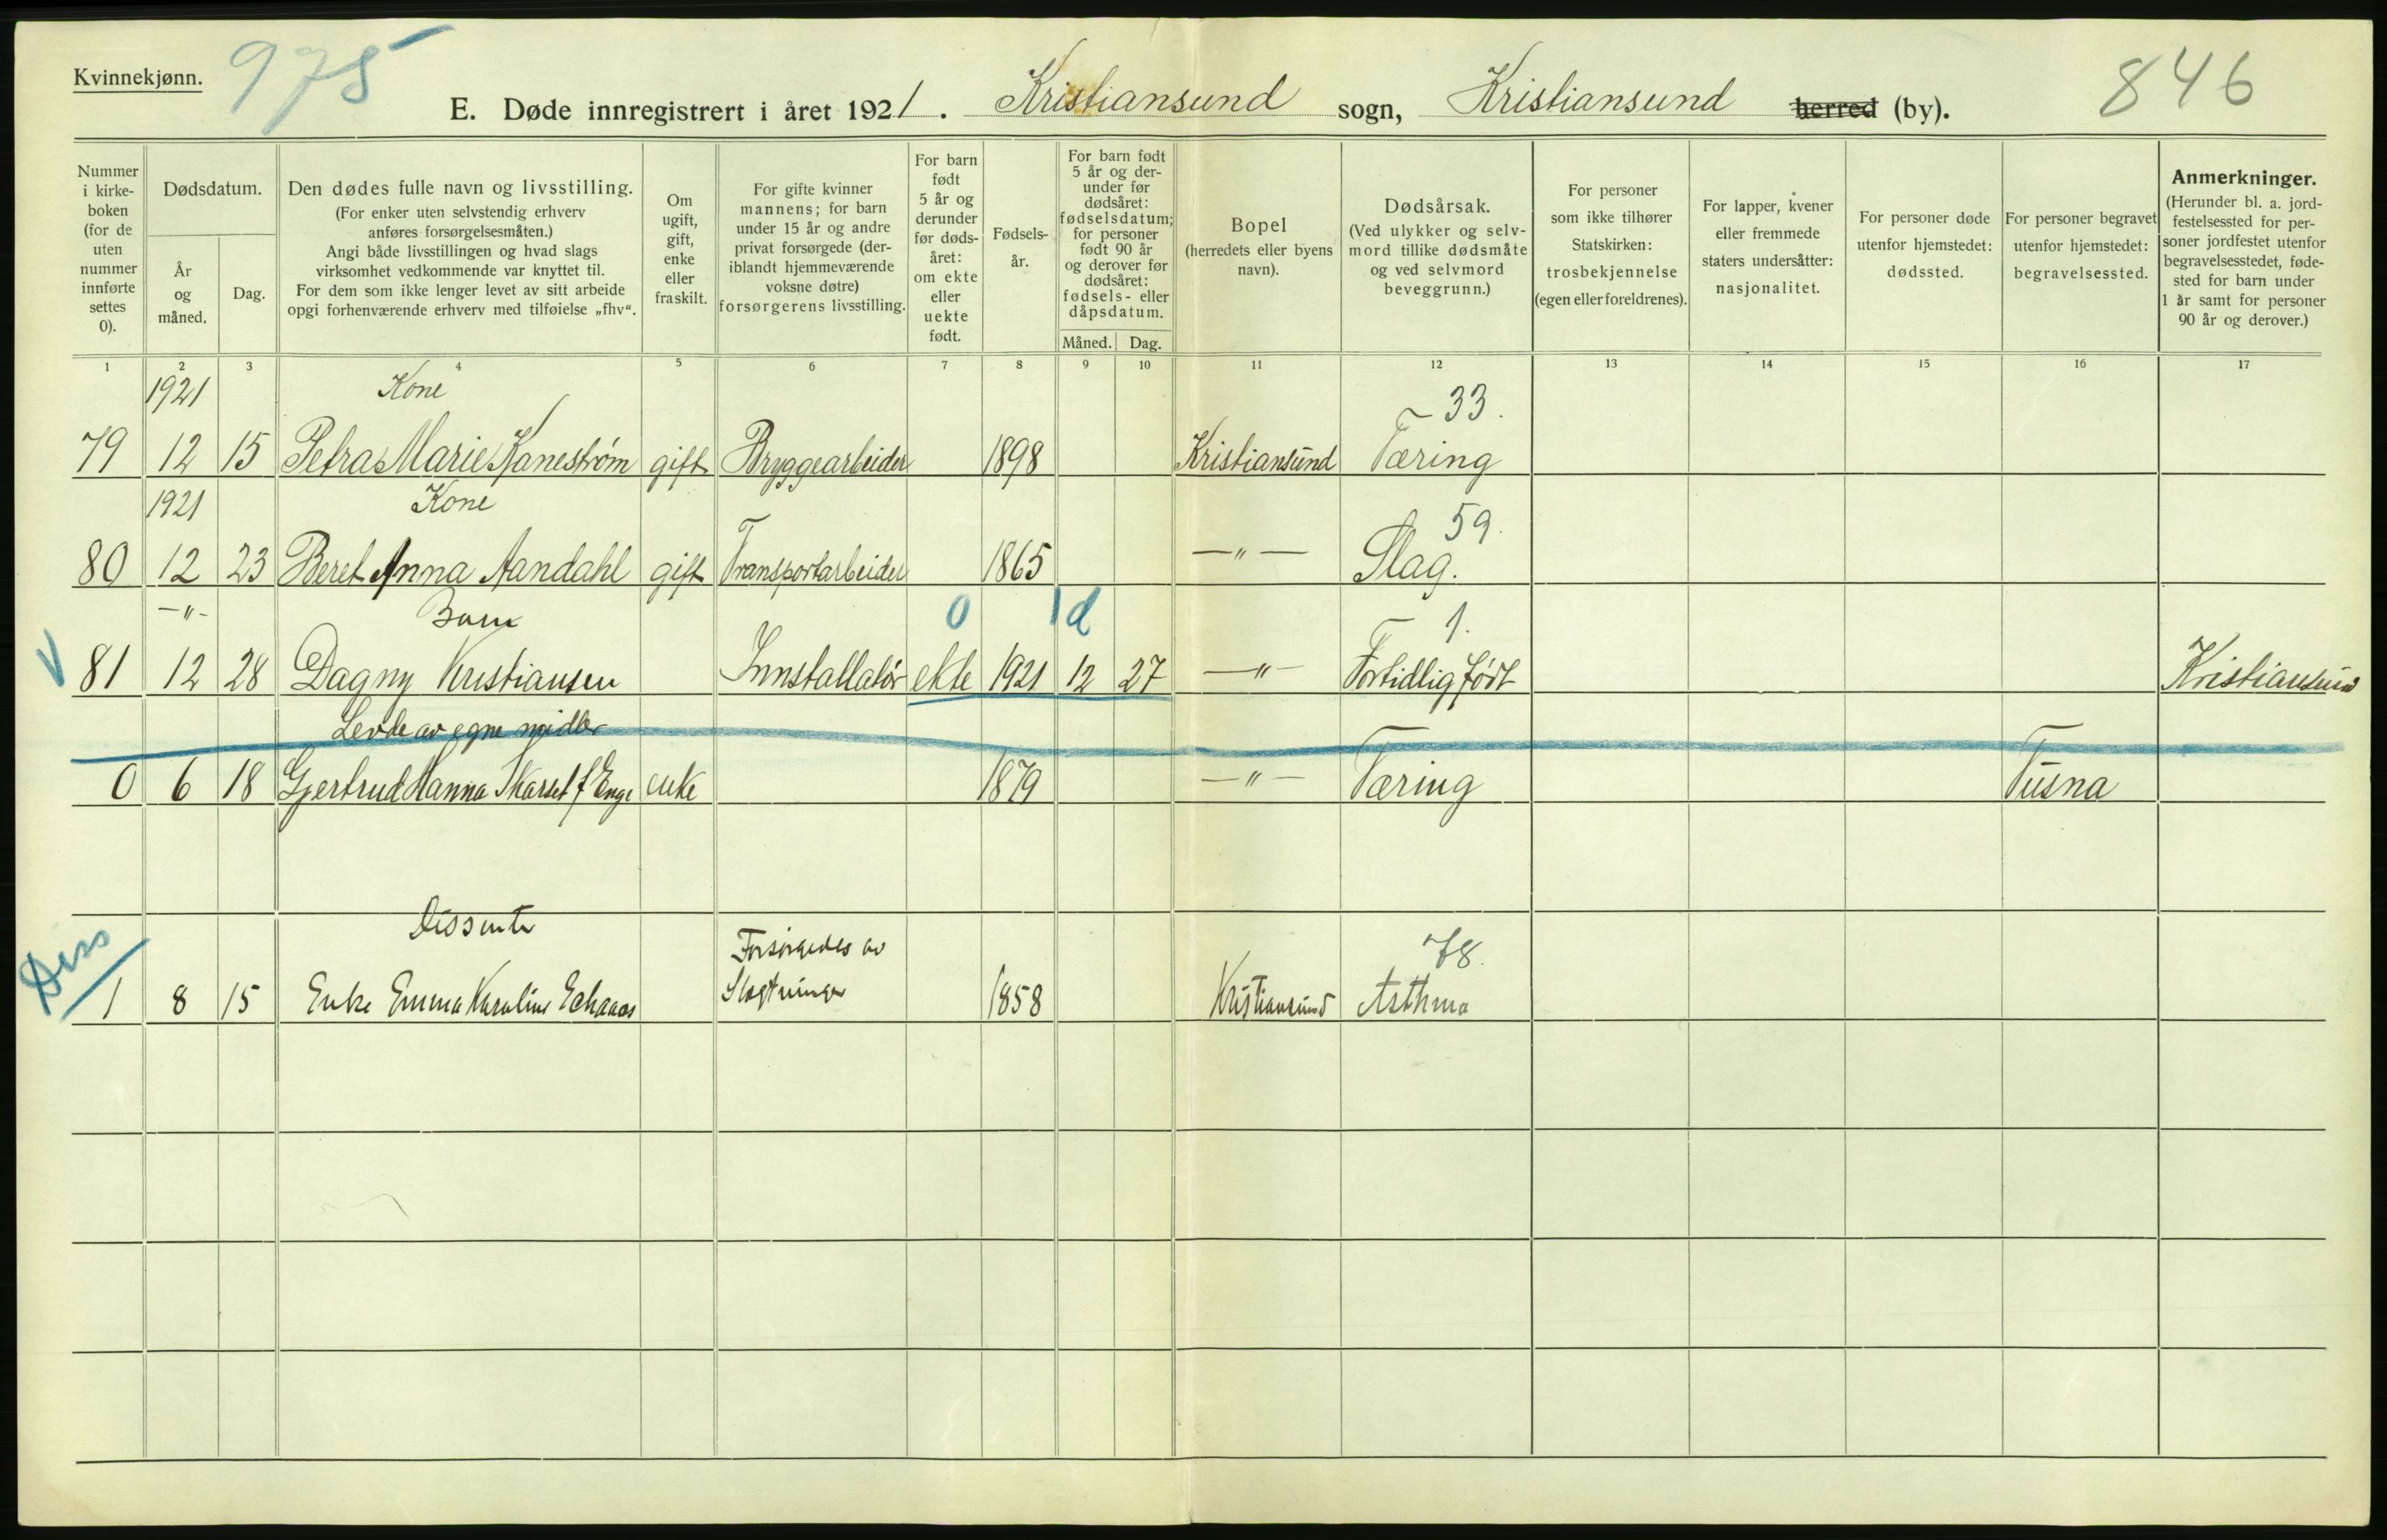 Kvinnekjønn.
975
846
E. Døde innregistrert i året 1921. Kristiansund sogn, Kristiansund herred (by).
Nummer
i kirke-
boken
(for de
uten
nummer
innførte
settes
0).
Dødsdatum.
År
og
måned.
Dag.
Den dødes fulle navn og livsstilling.
(For enker uten selvstendig erhverv
anføres forsørgelsesmåten.)
Angi både livsstillingen og hvad slags
virksomhet vedkommende var knyttet til.
For dem som ikke lenger levet av sitt arbeide
opgi forhenværende erhverv med tilføielse „fhv“.
Om
ugift,
gift,
enke
eller
fraskilt.
For gifte kvinner
mannens; for barn
under 15 år og andre
privat forsørgede (der-
iblandt hjemmeværende
voksne døtre)
forsørgerens livsstilling.
For barn
født
5 år og
derunder
før døds-
året:
om ekte
eller
uekte
født.
Fødsels-
år.
For barn født
5 år og der-
under før
dødsåret:
fødselsdatum;
for personer
født 90 år
og derover før
dødsåret:
fødsels- eller
dåpsdatum.
Måned. Dag.
Bopel
(herredets eller byens
navn).
Dødsårsak.
(Ved ulykker og selv-
mord tillike dødsmåte
og ved selvmord
beveggrunn.)
For personer
som ikke tilhører
Statskirken:
trosbekjennelse
(egen eller foreldrenes).
For lapper, kvener
eller fremmede
staters undersåtter:
nasjonalitet.
For personer døde
utenfor hjemstedet:
dødssted.
For personer begravet
utenfor hjemstedet:
begravelsessted.
Anmerkninger.
(Herunder bl. a. jord-
festelsessted for per-
soner jordfestet utenfor
begravelsesstedet, føde-
sted for barn under
1 år samt for personer
90 år og derover.)
1 2 3 4 5 6 7 8 9 10 11 12 13 14 15 16 17
1921 Kone 33.
79 12 15 Petra Marie Kanestrøm gift Bryggearbeider 1898 Kristiansund Tæring
1921 Kone 59.
80 12 23 Beret Anna Aandahl gift Transportarbeider 1865 —"— Slag.
—"— Barn 0 1 d 1.
V 81 12 28 Dagny Kristiansen Innstallatør ekte 1921 12 27 —"— Fortidlig født Kristiansund
Levde av egne midler
0 6 18 Gjertrud Hanna Skarset f Enge enke 1879 —"— Tæring Tusna
Diss
Dissenter
Forsørgedes av 78.
1 8 15 Enke Emma Karoline Echaaas Slægtninger 1858 Kristiansund Asthma